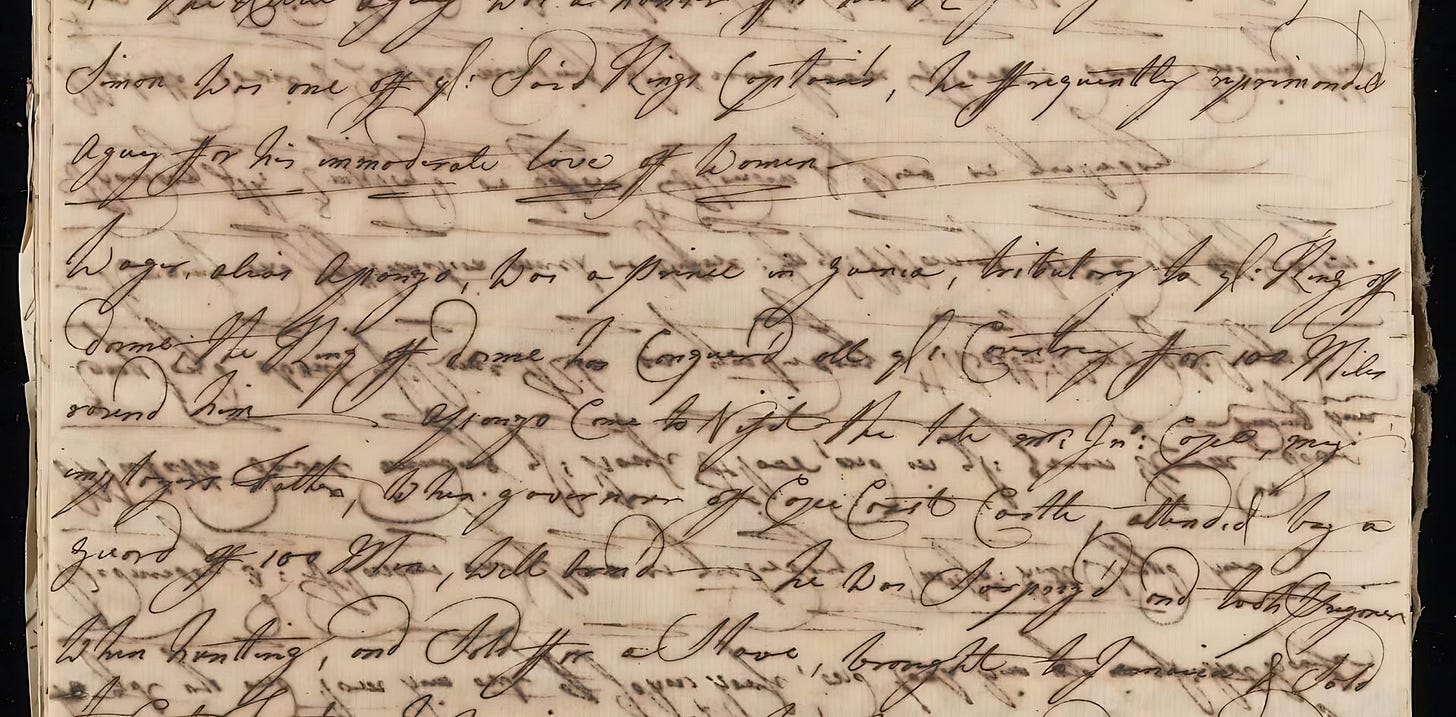 The
Simon was one off ye: Said Kings Captains, he ffrequently reprimanded
Aguy ffor his immoderate love off Women
Wager, alias Apongo, was a prince in guinea, tributary to ye: King off
dome, the King off dome has Conquerd all ye: Country ffor 100 Miles
round him Apongo Came to Visit the late mr: Jno: Cope, my
imployers Father, when governour off Cape Coast Castle, attended by a
guard off 100 Men, well armed he was Surpriz'd and took prisoner
when hunting, and Sold ffor a Slave, brought to Jamaica & Sold